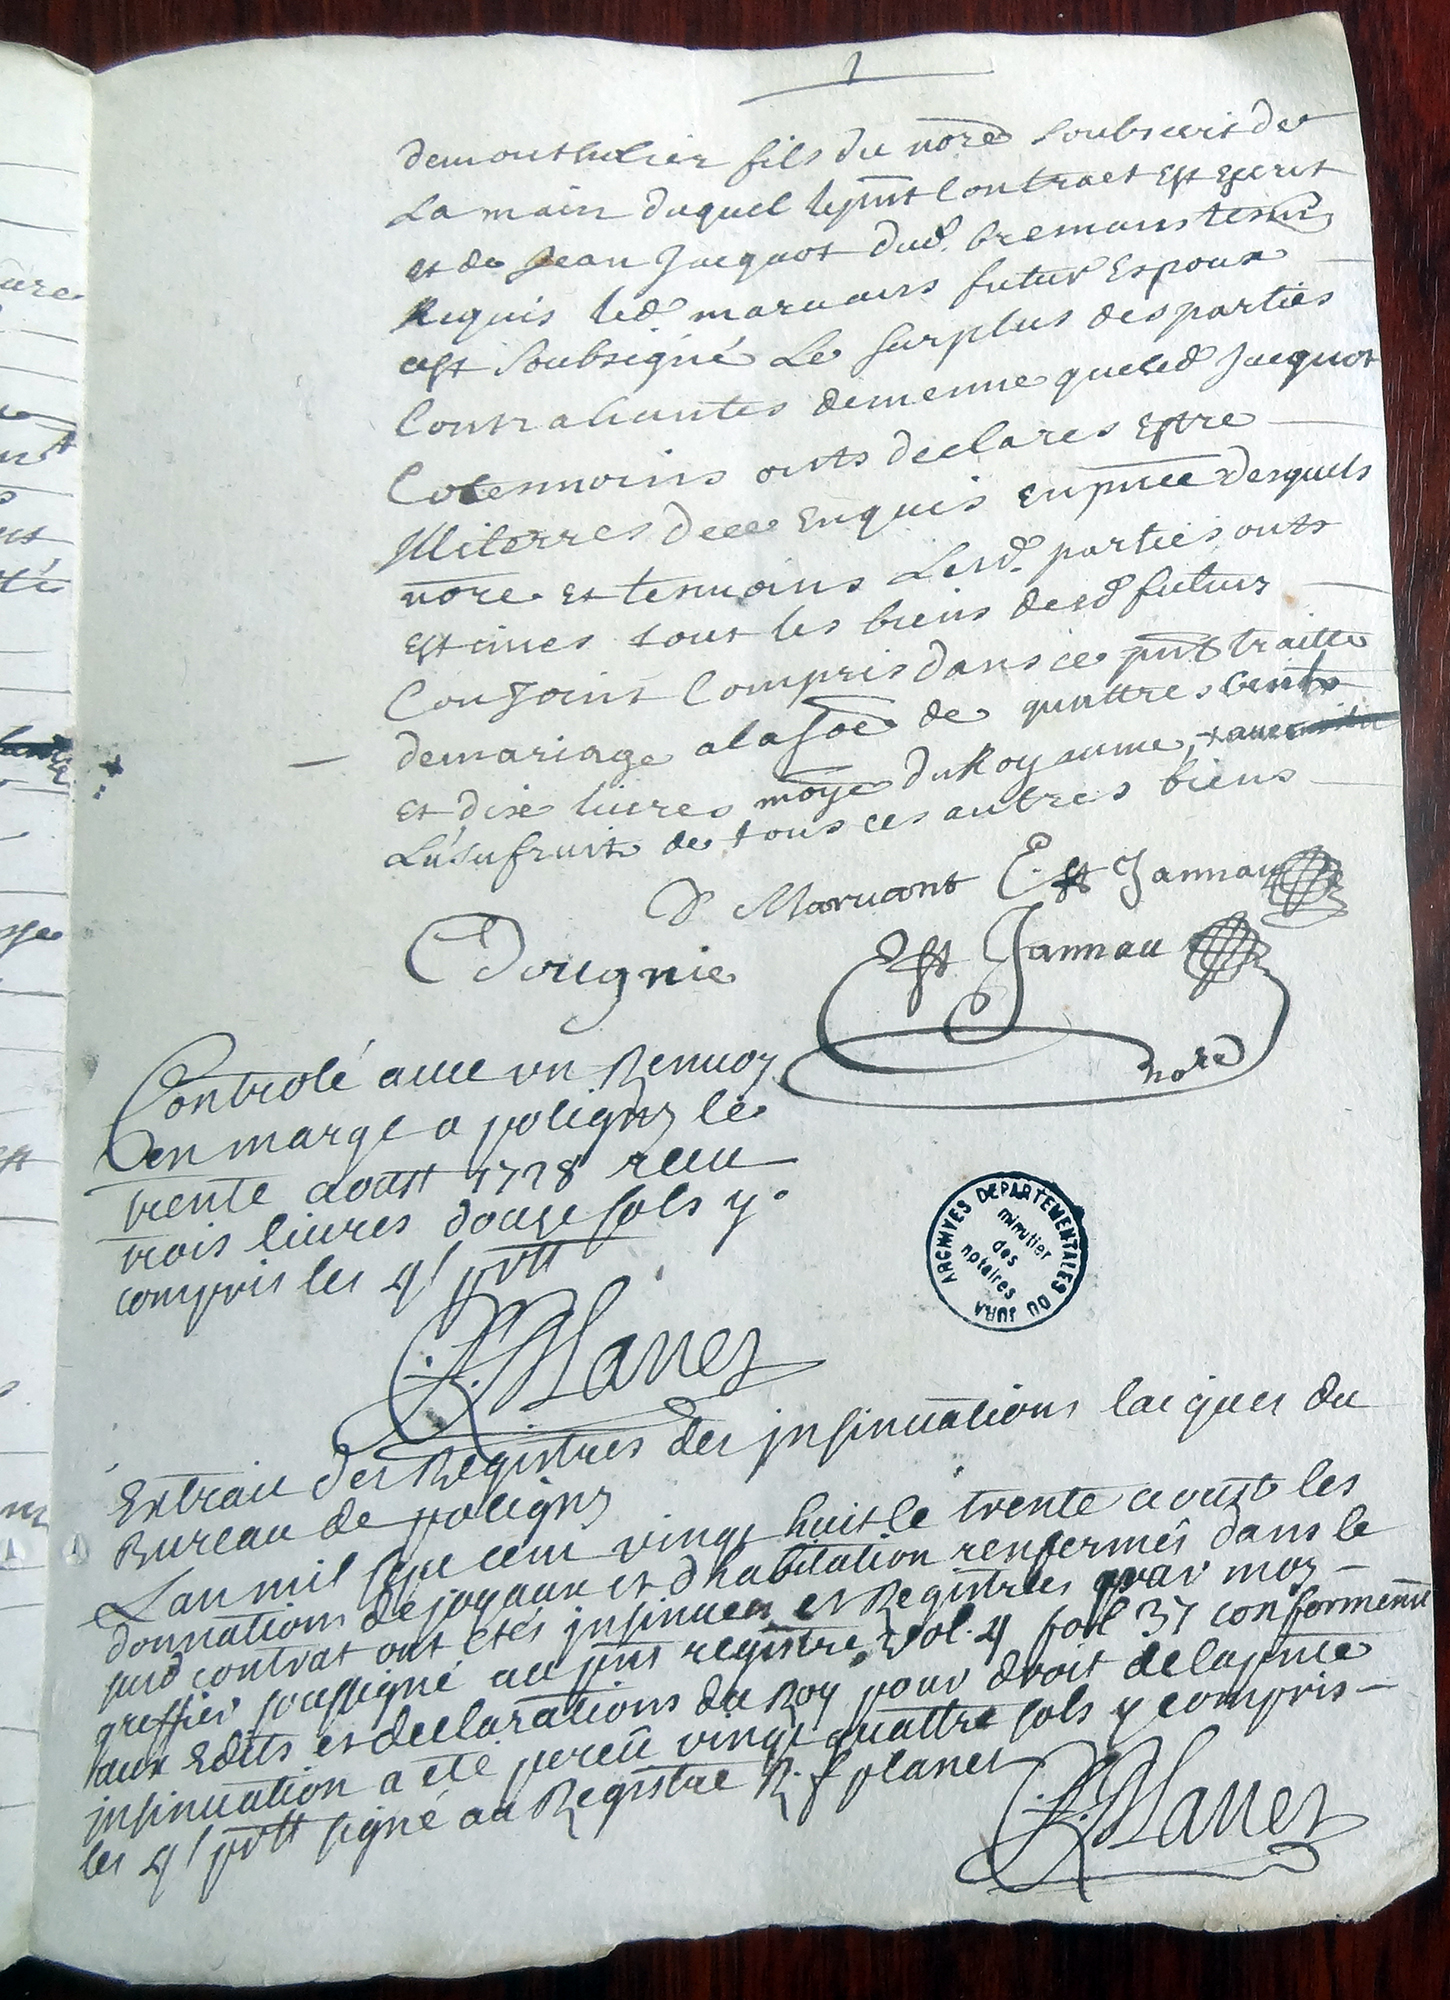 demonthelier fils du nore soubscrit de
La main duquel le pnt Contract est escrit
et de Jean Jacquot dud. bremans tesmoins
Requis led maruans futur Espoux
est soubsigné Le surplus des parties
Contrahantes demenne que led Jacquot
Cotesmoins onts declares Estre
Illiterres de ce Enquis En pnce desquels
nore et tesmoins Lesd. parties onts
Estimes tout les biens desd futurs
Conjoins Compris dans ce pnt traitte
de mariage a la soe de quattres cents
et dixe livres monye du Royaume,
L'usufruit de tous ces autres biens
D Maruant E. st Jannau
Dougnie
Est Jannau
nore
Controlé avec un Renvoy
en marge a poligny le
trente aoust 1728 receu
trois livres douze sols y
compris les 4s pr tt
R. f Planet
ARCHIVES DEPARTEMENTALES DU JURA
minutier
des
notaires
Extrait des Registres des insinuations laiques du
Bureau de poligny
Lan mil sept cent vingt huit le trente aoust les
donnations de joyaux et dhabitation renfermés dans le
susd contrat ont étés insinuees et Registrées par moy
greffier soussigné au pnt registre, vol. 4 fol 37 conformemt
aux Edits et declarations du Roy pour droit de la pnte
insinuation a été perceu vingt quattre sols y compris
les 4s pr tt signé au Registre R. f planet
R. f Planet